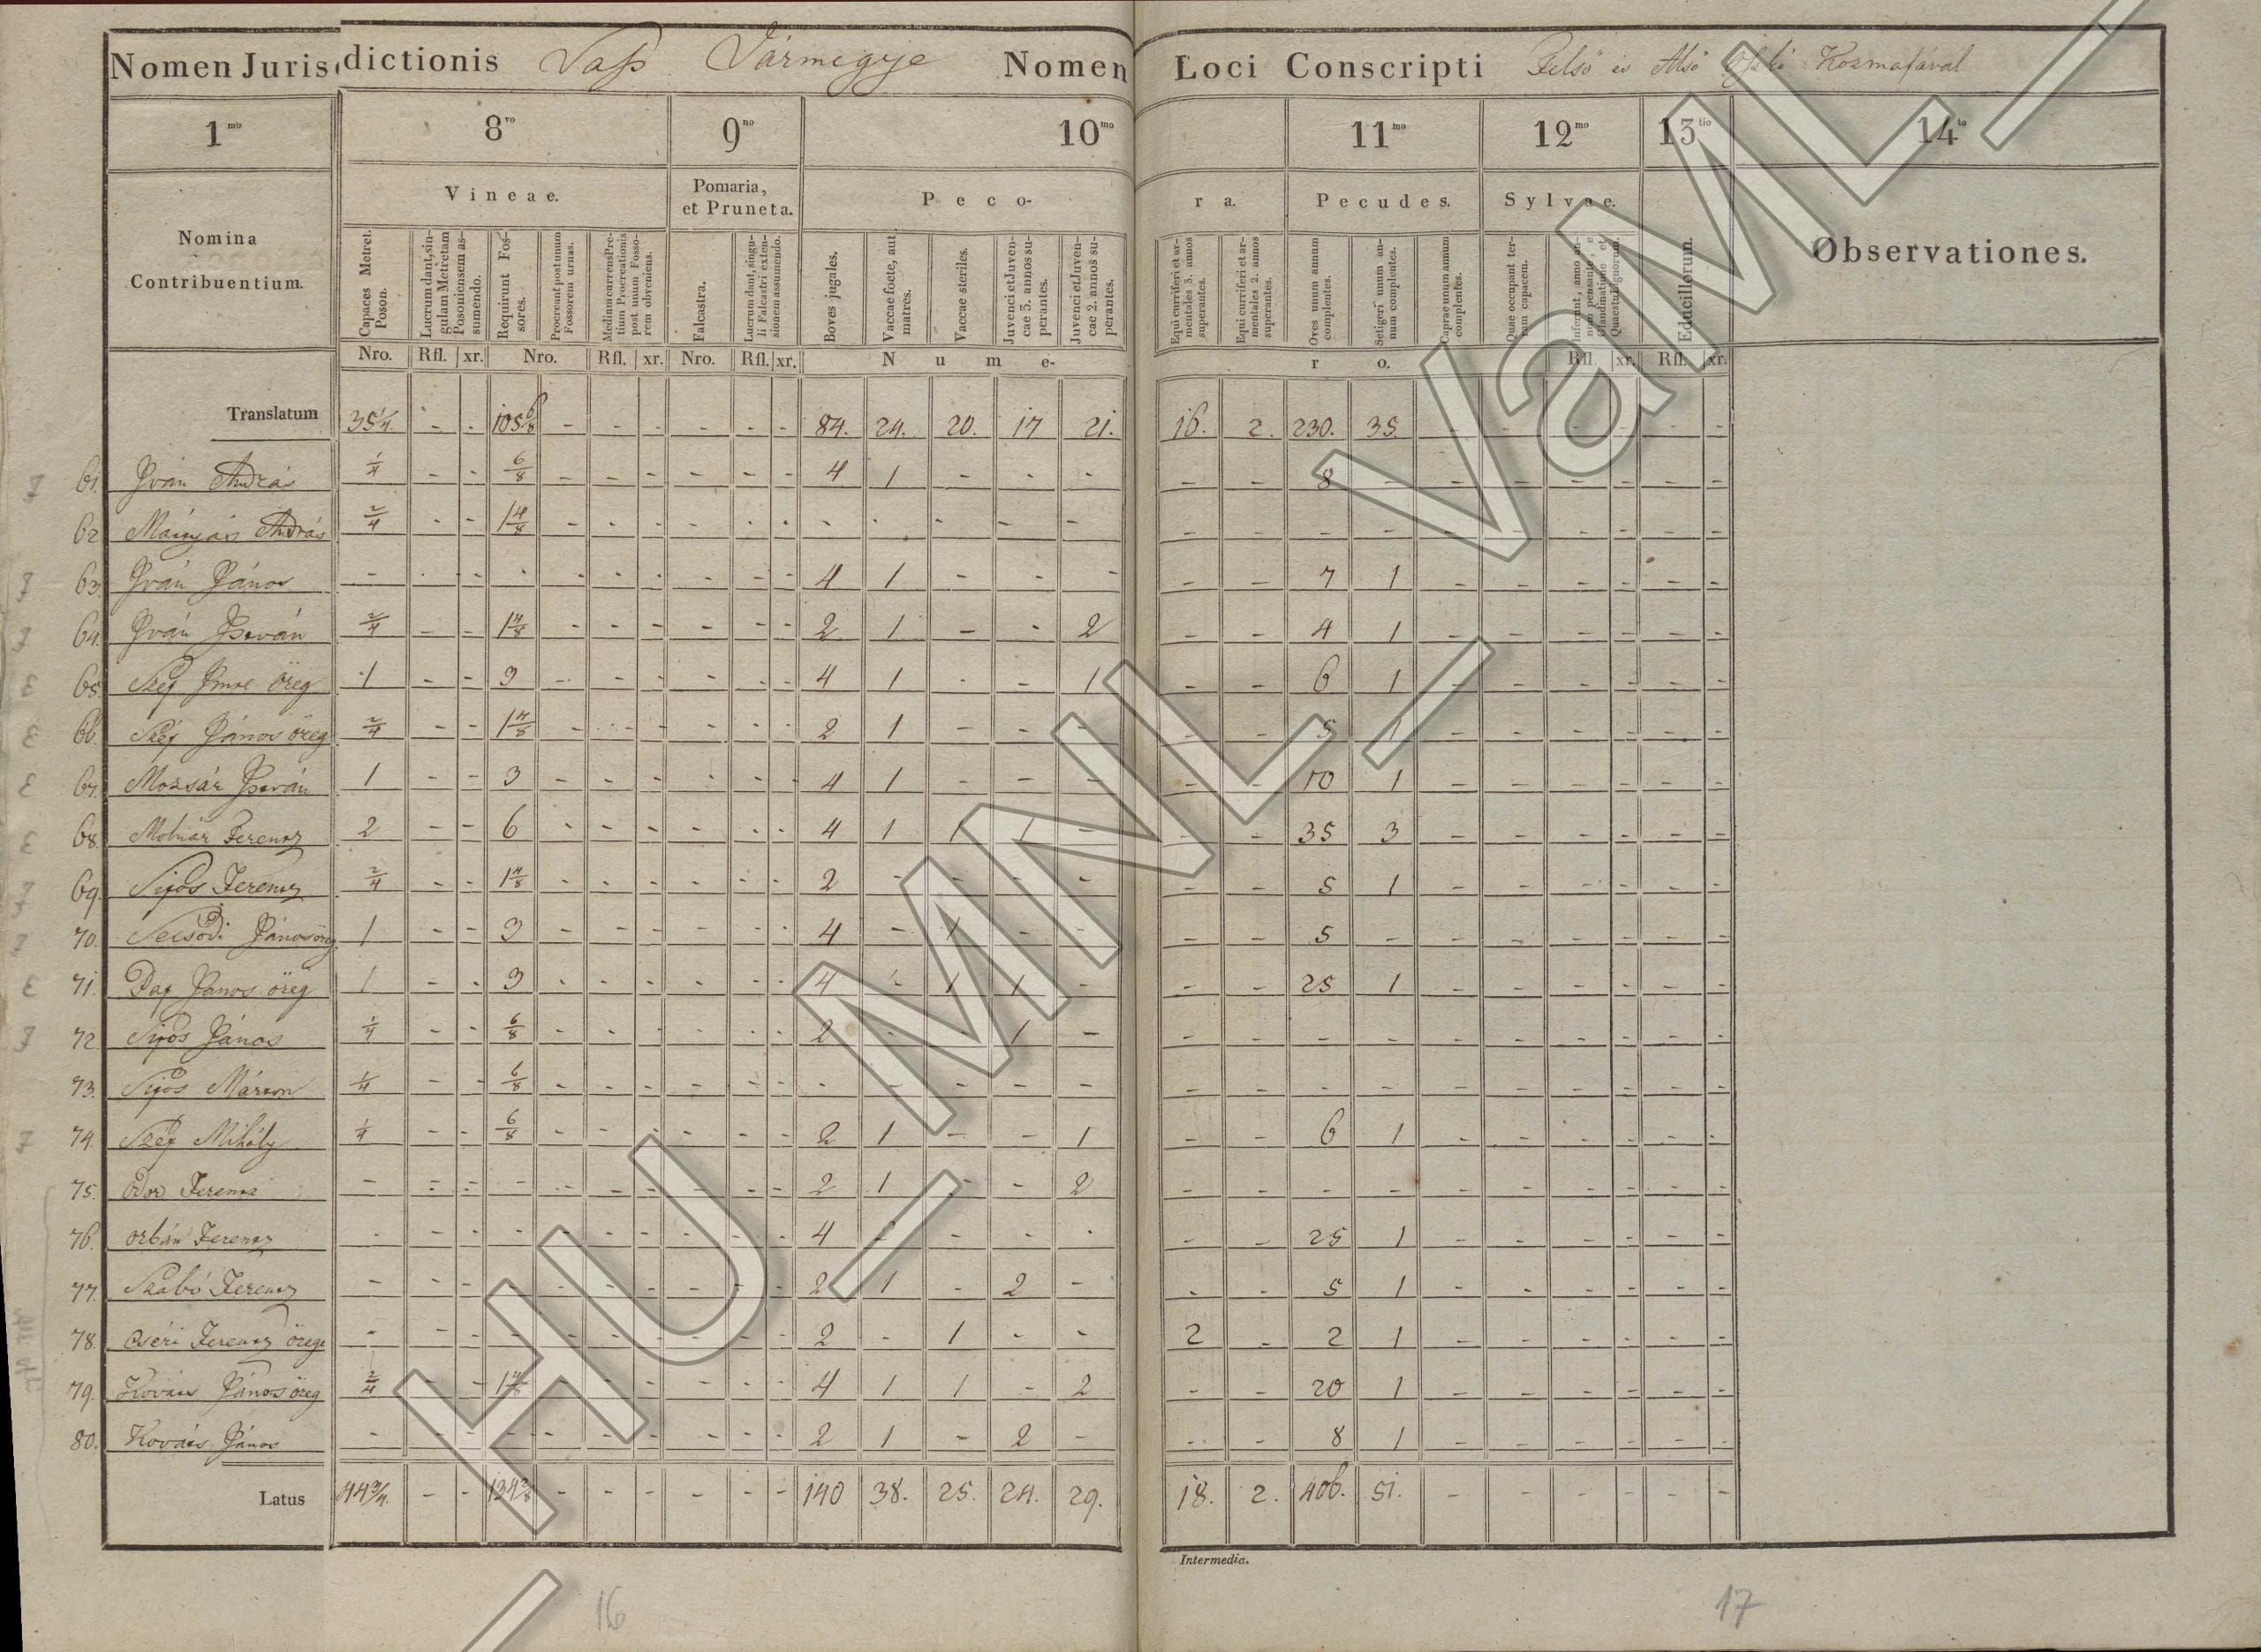 Nomen Jurisdictionis Vas Vármegye Nomen Loci Conscripti Felső és Alsó Kozmafával
1mo 8vo 9no 10mo 11mo 12mo 13tio 14to
Nomina Contribuentium. Vineae. Pomaria, et Pruneta. Peco-ra. Pecudes. Sylvae. Educillorum. Observationes.
Capaces Metret. Poson.
Lucrum dant, singulam Metretam Posoniensem assumendo.
Requirunt Fossores.
Procreant post unum Fossorem urnas.
Medium carrens Pretium Procreationis post unum Fossorem obveniens.
Falcastra.
Lucrum dant, singuli Falcastri extensionem assumendo.
Boves jugales.
Vaccae foete, aut matres.
Vaccae steriles.
Juvenci et Juvencae 3. annos superantes.
Juvenci et Juvencae 2. annos superantes.
Equi curriferi et armentales 3. annos superantes.
Equi curriferi et armentales 2. annos superantes.
Oves unum annum complentes.
Setigeri unum annum complentes.
Caprae unum annum complentes.
Quae occupant terram capacem.
Nro. Rfl. xr. Nro. Rfl. xr. Nro. Rfl. xr. N u m e- r o. Rfl. xr. Rfl. xr.
Translatum 35 1/4. - - 105 6/8 - - - - - - 84. 24. 20. 17 21. 16. 2. 230. 35 - - - - - -
61. Iván András 1/4 - - 6/8 - - - - - - 4 1 - - - - - 8 - - - - - - -
62 Mányás András 2/4 - - 1 4/8 - - - - - - - - - - - - - - - - - - - -
63. Iván János - - - - - - - - - - 4 1 - - - - - 7 1 - - - - - -
64. Iván István 2/4 - - 1 4/8 - - - - - - 2 1 - - 2 - - 4 1 - - - - - -
65. Szép Imre öreg 1 - - 3 - - - - - - 4 1 - - 1 - - 6 1 - - - - - -
66. Szép János öreg 2/4 - - 1 4/8 - - - - - - 2 1 - - - - - 5 1 - - - - - -
67. Mozsár István 1 - - 3 - - - - - - 4 1 - - - - - 10 1 - - - - - -
68. Molnár Ferencz 2 - - 6 - - - - - - 4 1 1 1 - - - 35 3 - - - - - -
69. Sipos Ferencz 2/4 - - 1 4/8 - - - - - - 2 - - - - - - 5 1 - - - - - -
70. Secsődi János öreg 1 - - 3 - - - - - - 4 - 1 - - - - 5 - - - - - - -
71. Pap János öreg 1 - - 3 - - - - - - 4 - 1 1 - - - 25 1 - - - - - -
72. Sipos János 1/4 - - 6/8 - - - - - - 2 - - 1 - - - - - - - - - - -
73. Sipos Márton 1/4 - - 6/8 - - - - - - - - - - - - - - - - - - - - -
74. Szép Mihály 1/4 - - 6/8 - - - - - - 2 1 - - 1 - - 6 1 - - - - - -
75. Odor Ferencz - - - - - - - - - - 2 1 - - 2 - - - - - - - - - -
76. Orbán Ferencz - - - - - - - - - - 4 2 - - - - - 25 1 - - - - - -
77. Szabó Ferencz - - - - - - - - - - 2 1 - 2 - - - 5 1 - - - - - -
78. Cséri Ferencz öreg - - - - - - - - - - 2 - 1 - - 2 - 2 1 - - - - - -
79. Kovács János öreg 2/4 - - 1 4/8 - - - - - - 4 1 1 - 2 - - 20 1 - - - - - -
80. Kovács János - - - - - - - - - - 2 1 - 2 - - - 8 1 - - - - - -
Latus 44 3/4. - - 134 2/8 - - - - - - 140 38. 25. 24. 29. 18. 2. 406. 51. - - - - - -
Intermedia.
16 17
HU_MNL_VaML_